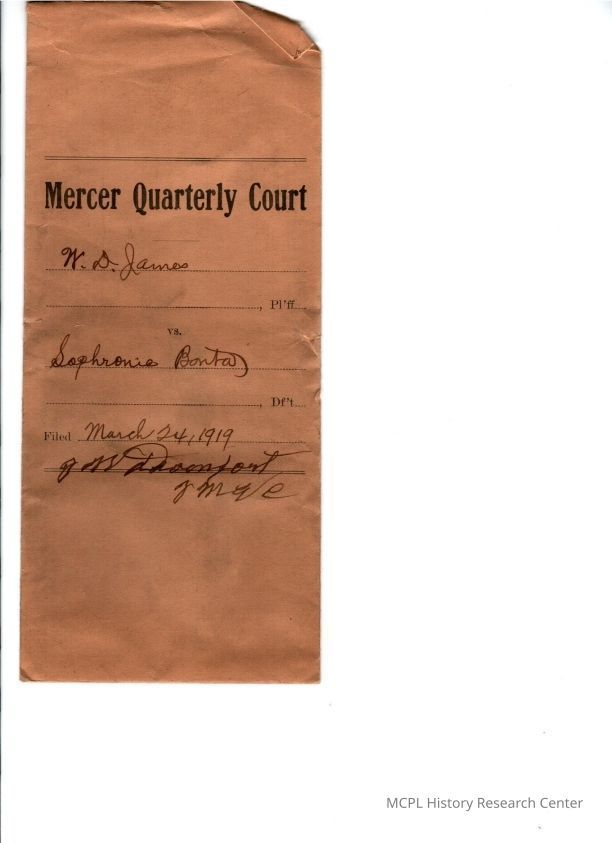 Mercer Quarterly Court
W. D. James
, Pl'ff.
vs.
Sophronia Bonta
, Df't.
Filed March 24, 1919
Davenport
MCPL History Research Center